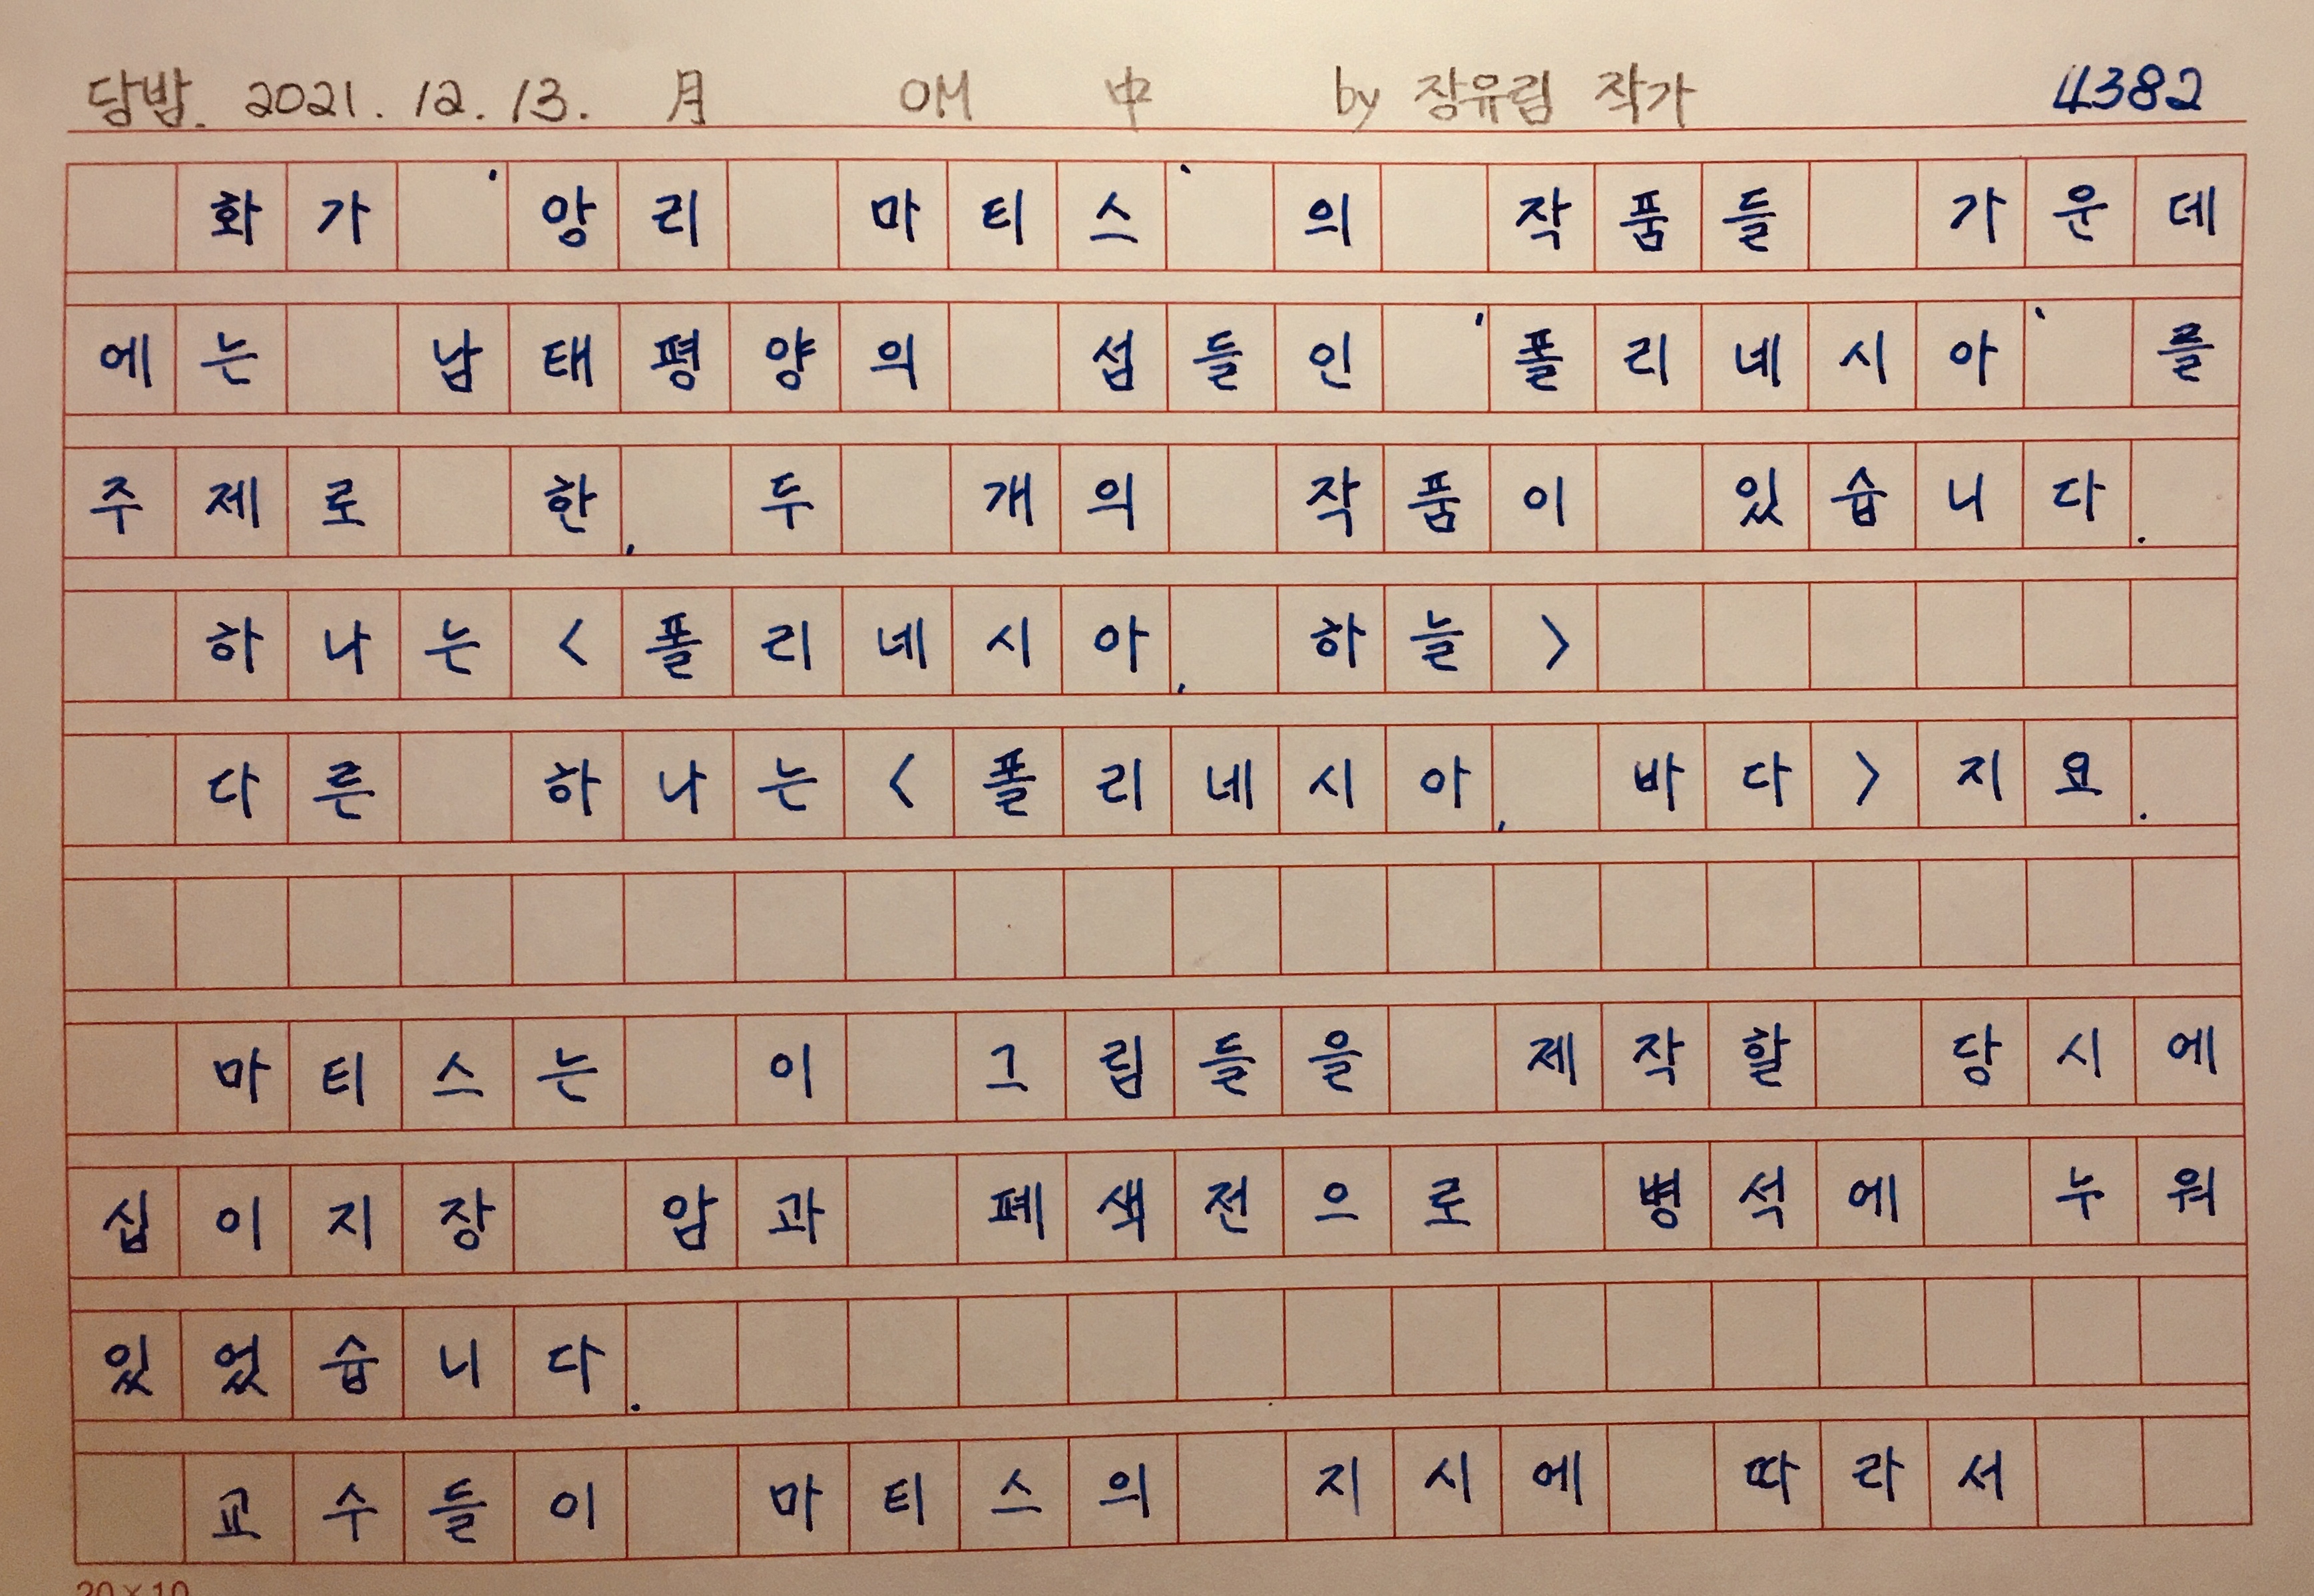 담밤. 2021. 12. 13. 月 OM 中 by 장유림 작가 4382
화가 '앙리 마티스'의 작품들 가운데
에는 남태평양의 섬들인 '폴리네시아'를
주제로 한, 두 개의 작품이 있습니다.
하나는 <폴리네시아, 하늘>
다른 하나는 <폴리네시아, 바다>지요.
마티스는 이 그림들을 제작할 당시에
십이지장 암과 폐색전으로 병석에 누워
있었습니다.
교수들이 마티스의 지시에 따라서
20×10